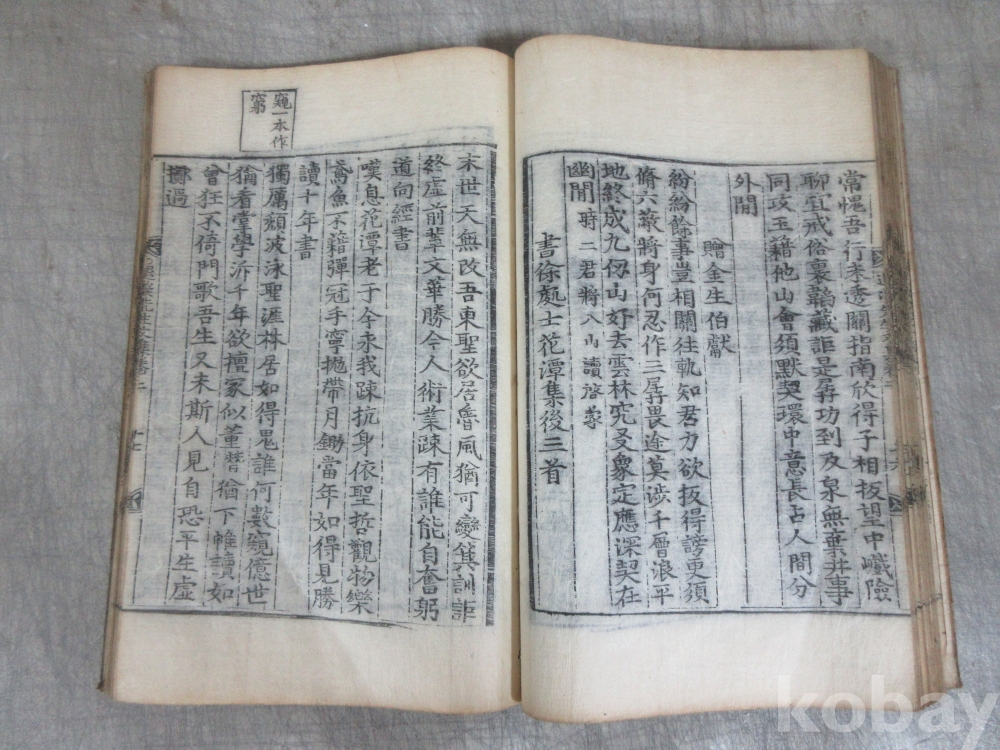 常愳吾行未透關指南欣得子相扳望中巇險
聊宜戒俗裏韜藏詎是孱功到及泉無棄井事
同攻玉藉他山會須默契環中意長占人間分
外閒
贈金生伯獻
紛紛餘事豈相關往軌知君力欲扳得謗更須
脩六蔽將身何忍作三孱畏途莫涉千層浪平
地終成九仞山好去雲林究爻象定應深契在
幽閒 時二君將入山讀啓蒙
書徐處士花潭集後三首
末世天無改吾東聖欲居魯風猶可變箕訓詎
終虛前輩文華勝今人術業疎有誰能自奮躬
道向經書
嘆息花潭老于今永我疎抗身依聖哲觀物樂
鳶魚不藉彈冠手寧拋帶月鋤當年如得見勝
讀十年書
獨厲頹波泳聖涯林居如得鬼誰何數窺億世
猶看掌學泝千年欲擅家似董嘗猶下帷讀如
曾狂不倚門歌吾生又未斯人見自恐平生虛
擲過
窺一本作
窮